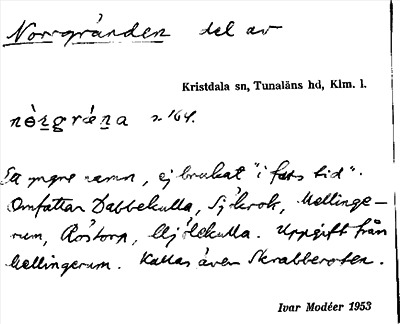 Norrgränden del av
Kristdala sn, Tunaläns hd, Klm. l.
nò̱rgræ̀na s. 164.
Ett yngre namn, ej brukat "i fars tid".
Omfattar Dabbekulla, Sjökrok, Mellinge-
rum, Röstorp, Mjölekulla. Uppgift från
Mellingerum. Kallas även Skrabberoten.
Ivar Modéer 1953